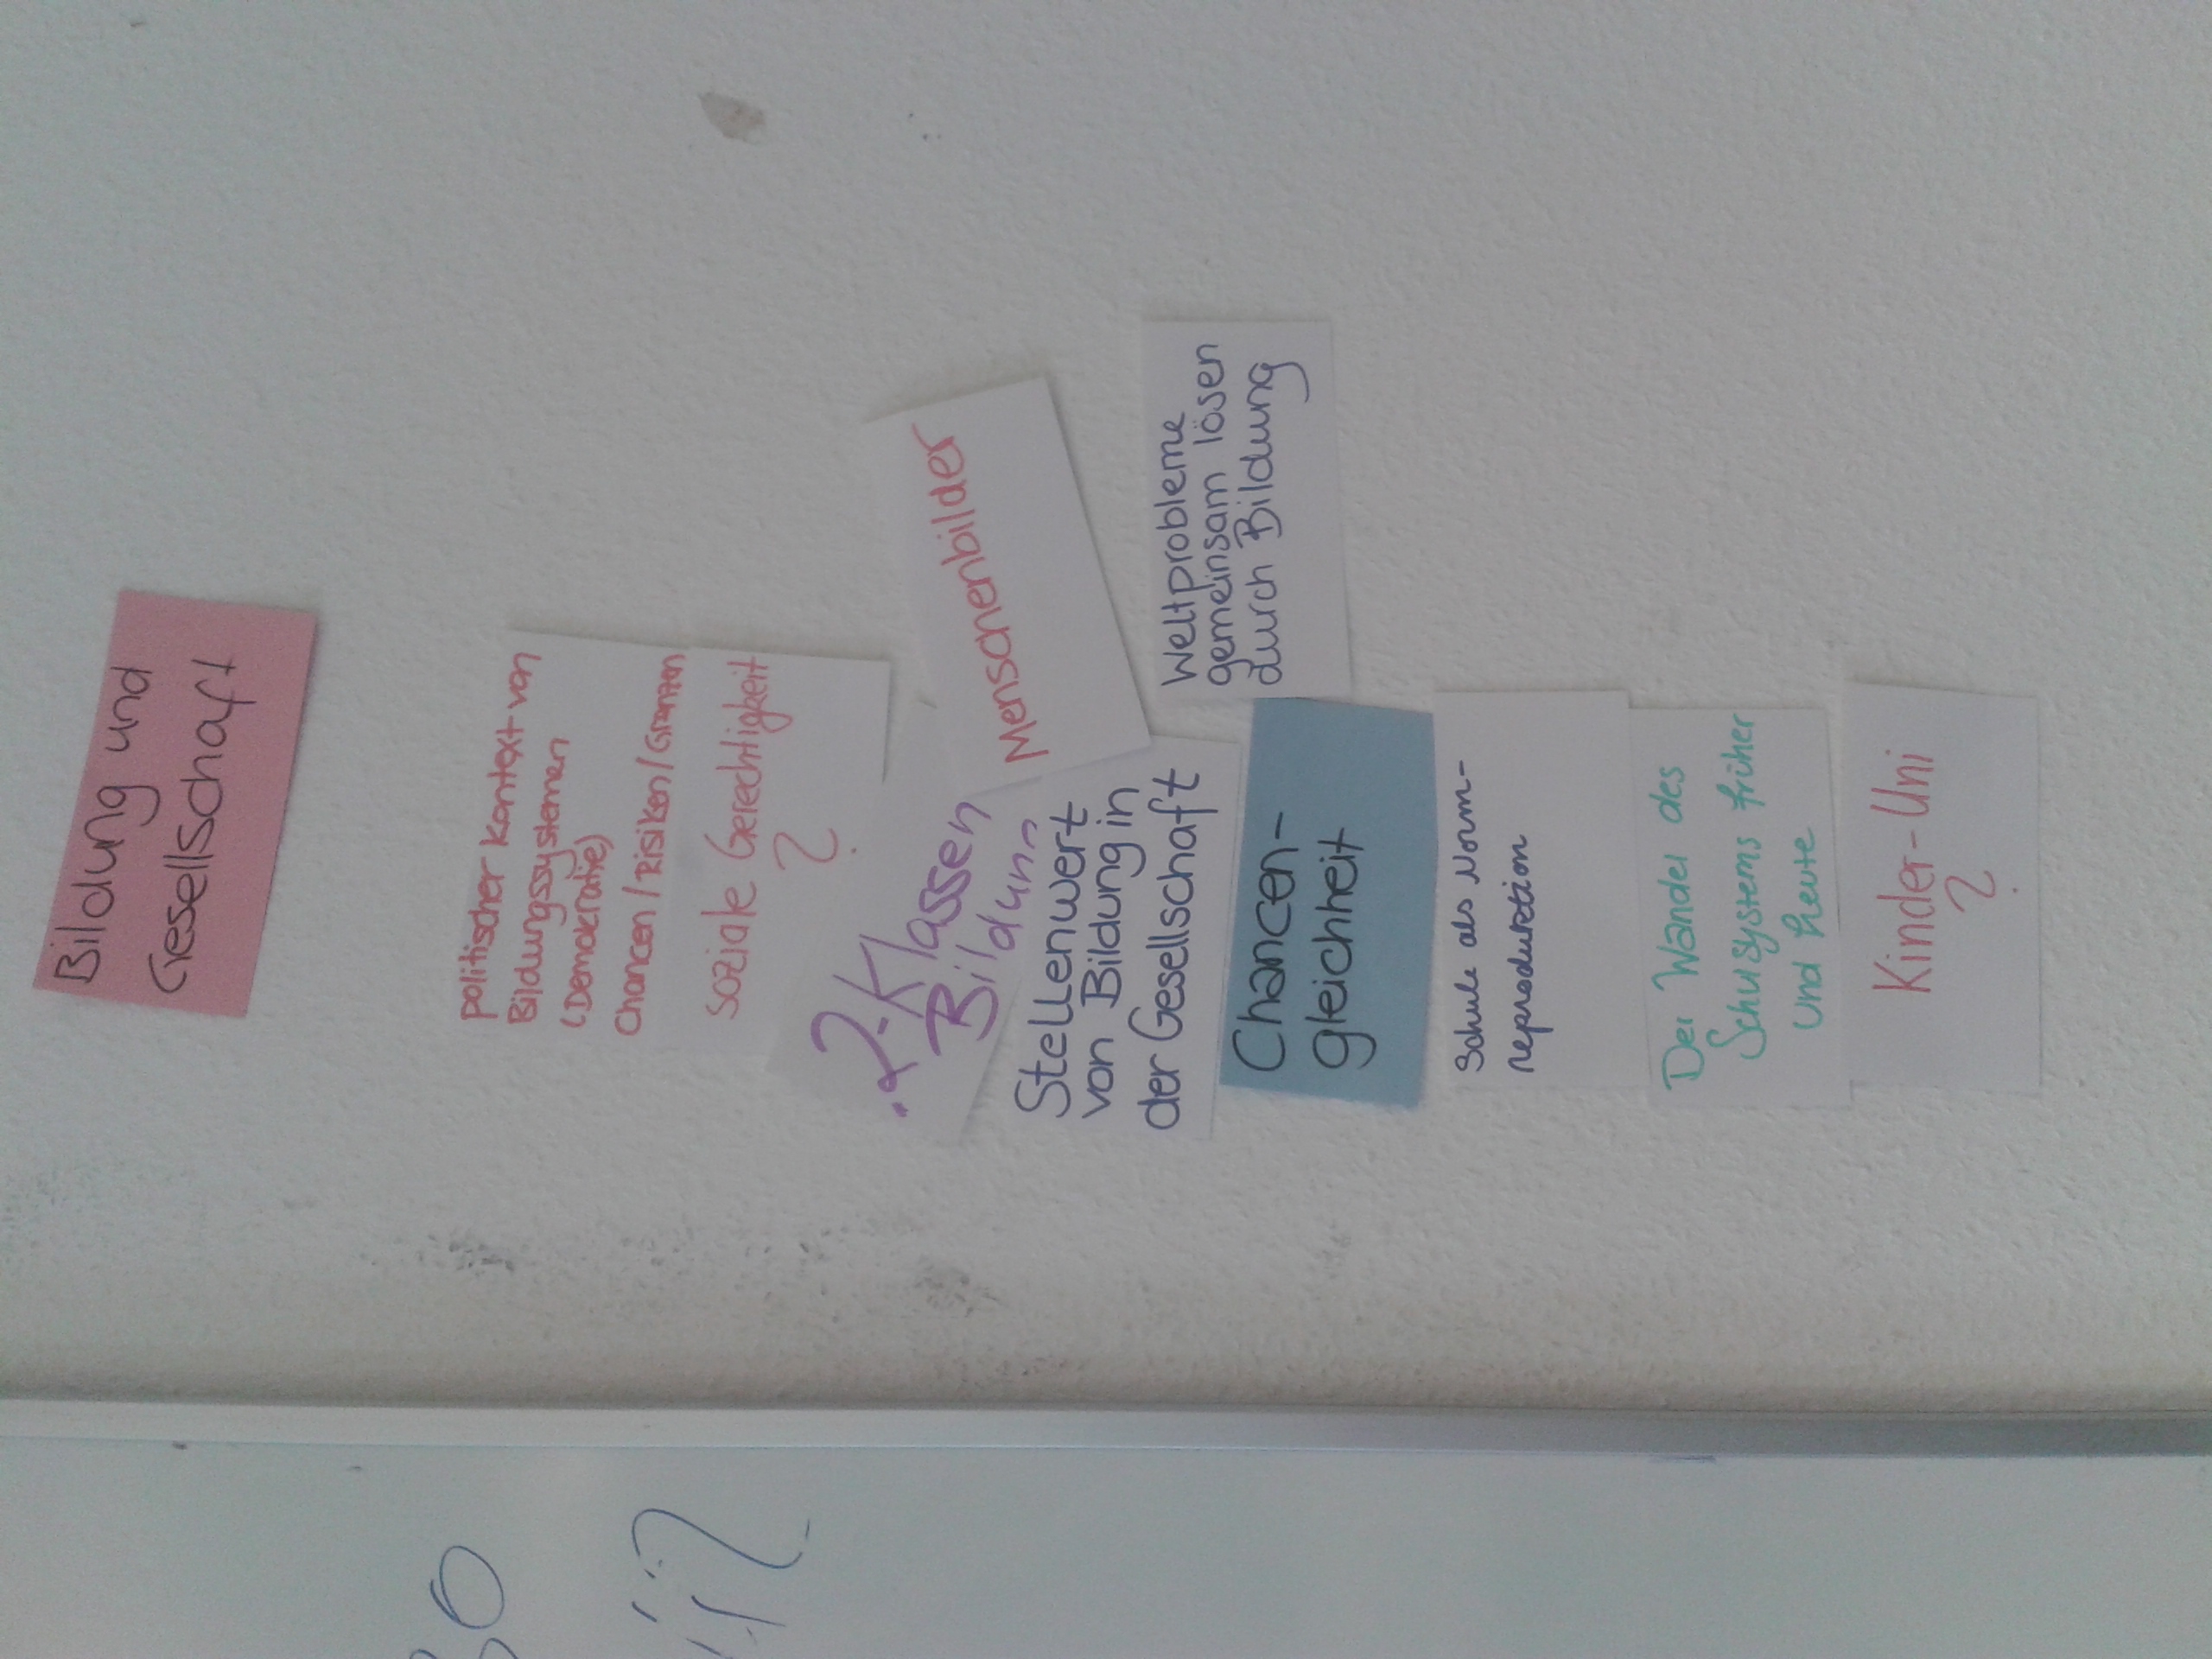 Bildung und
Gesellschaft
30
politischer Kontext von
Bildungssystemen
(Demokratie)
Chancen / Risiken / Grenzen
soziale Gerechtigkeit
?
2-Klassen
Bildung
Menschenbilder
Stellenwert
von Bildung in
der Gesellschaft
Weltprobleme
gemeinsam lösen
durch Bildung
Chancen-
gleichheit
Schule als Norm-
reproduktion
Der Wandel des
Schulsystems früher
und heute
Kinder-Uni
?